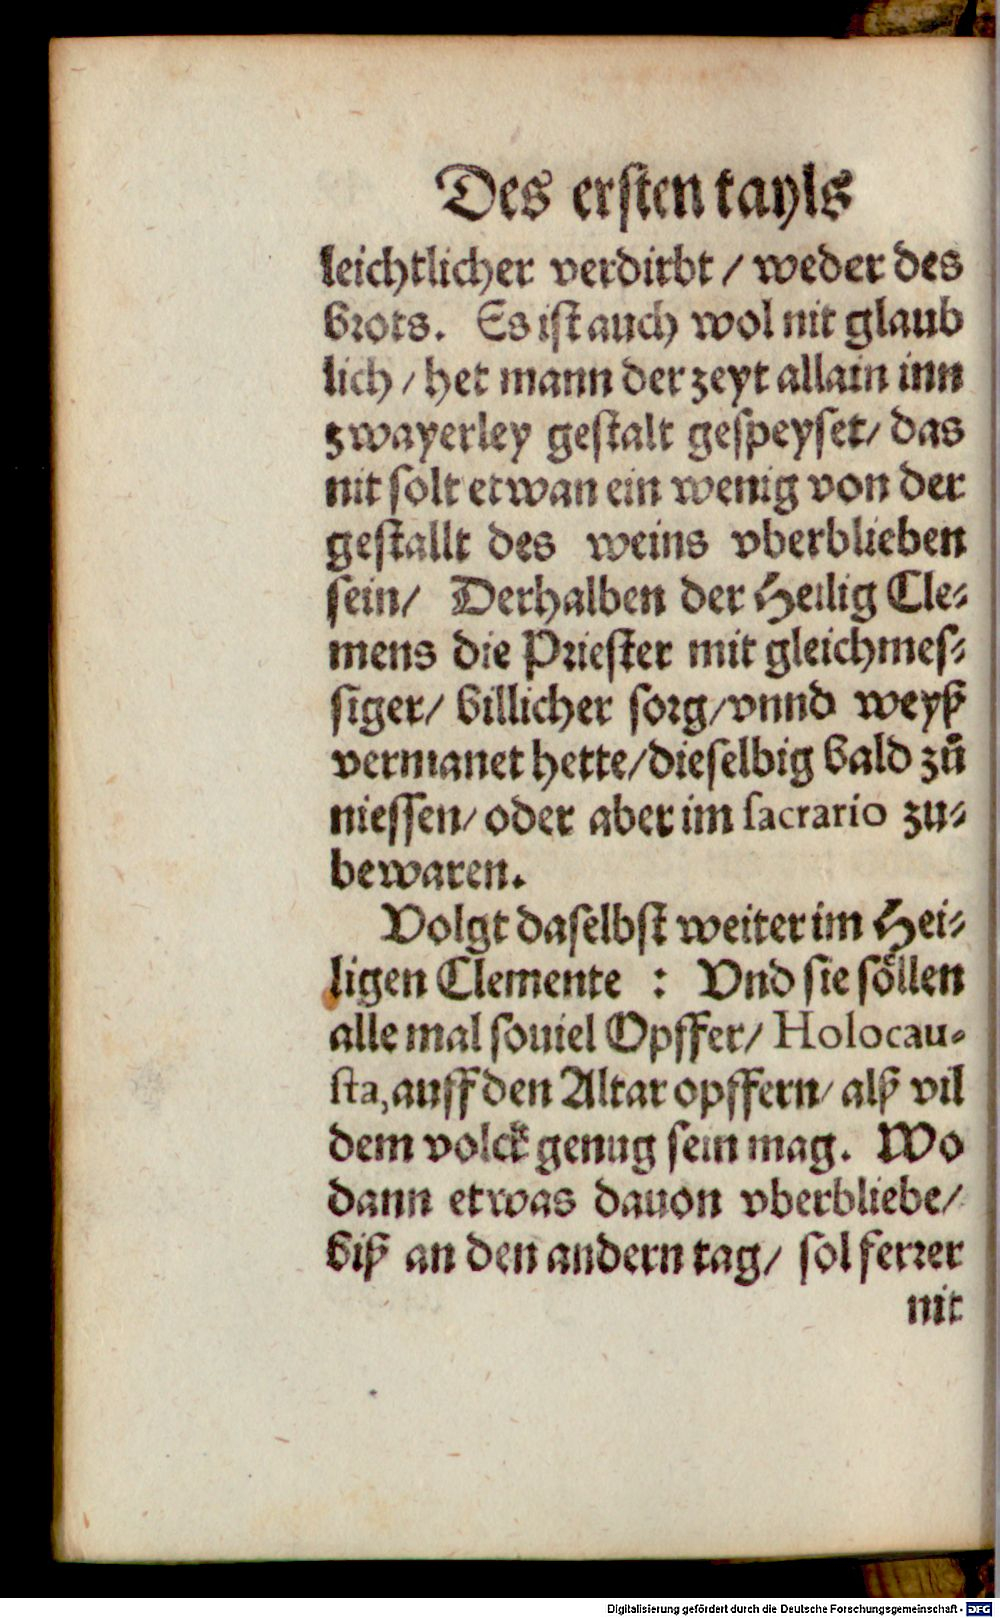 Des ersten tayls
leichtlicher verdirbt / weder des
brots. Es ist auch wol nit glaub
lich / het mann der zeyt allain inn
zwayerley gestalt gespeyset / das
nit solt etwan ein wenig von der
gestallt des weins vberblieben
sein / Derhalben der Heilig Cle-
mens die Priester mit gleichmes-
siger / billicher sorg / vnnd weyß
vermanet hette / dieselbig bald zů
niessen / oder aber im sacrario zu-
bewaren.
Volgt daselbst weiter im Hei-
ligen Clemente : Vnd sie söllen
alle mal souiel Opffer / Holocau-
sta, auff den Altar opffern / alß vil
dem volck genug sein mag. Wo
dann etwas dauon vberbliebe /
biß an den andern tag / sol ferrer
nit
Digitalisierung gefördert durch die Deutsche Forschungsgemeinschaft - DFG